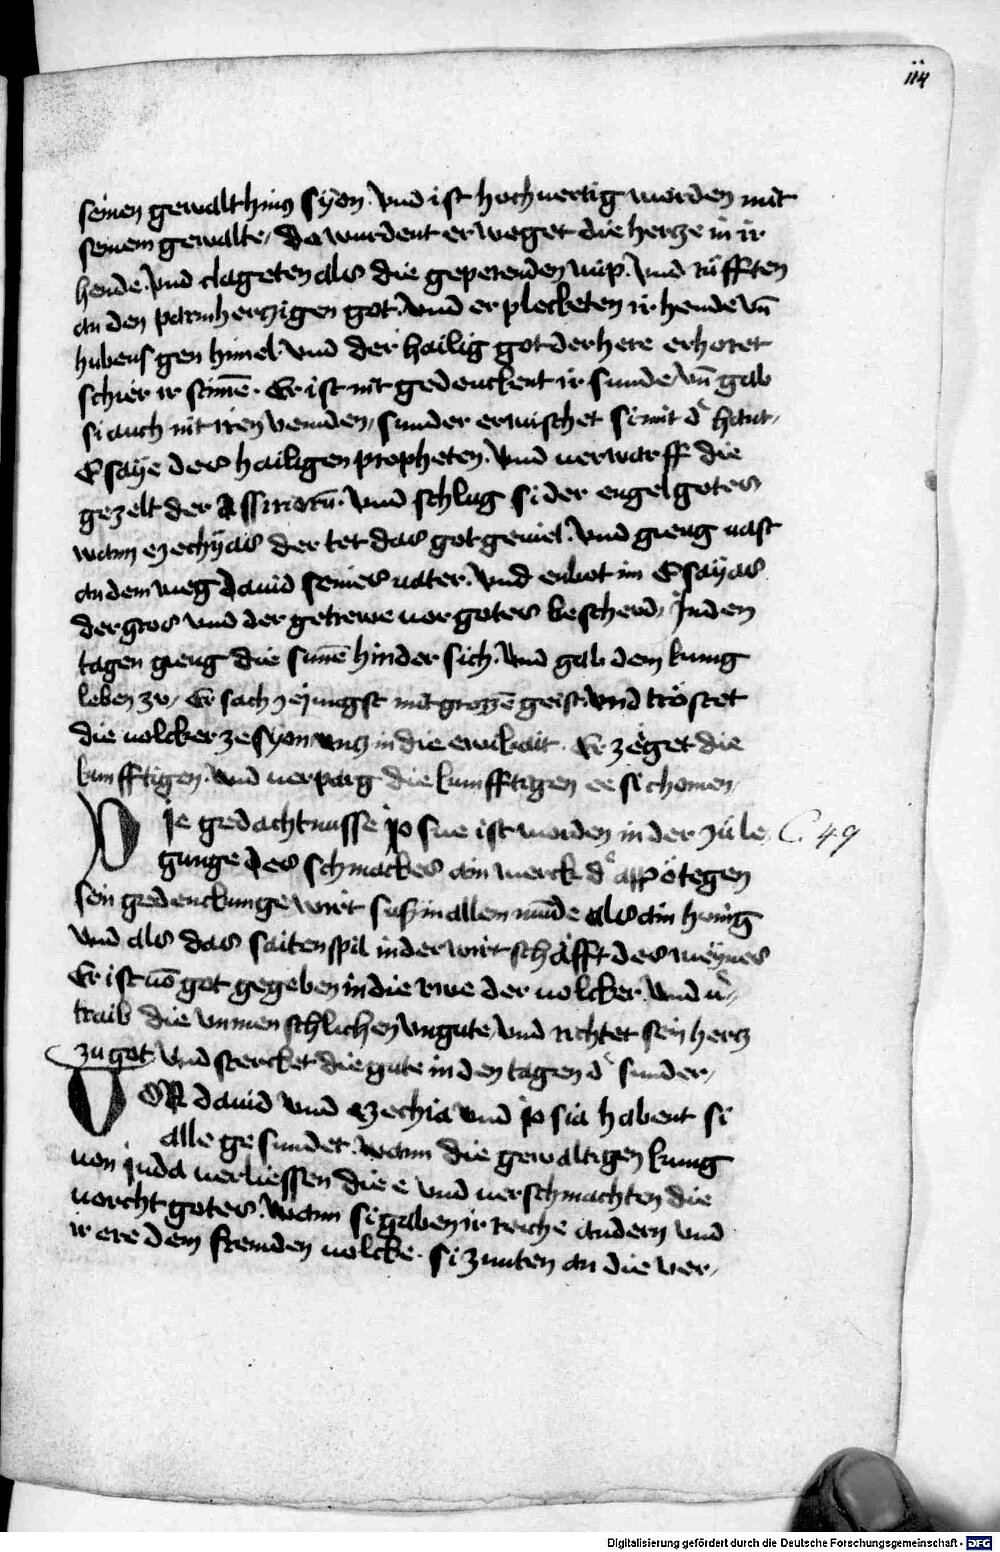 iiij
seinen gewalt hincz syon. vnd ist hochuertig worden mit
seinem gewalte, da wurdent erweget die hercze in ir
hende. vnd clageten als die geperenden wip. vnd rüfften
an den parmherczigen got. vnd er pleckten ir hende vn̄
hubens gen himel. vnd der hailig got der here erhoret
schier ir stim̄e. Er ist nit gedenckent ir sunde, vn̄ gab
si auch nit iren veinden, sunder er wischet si mit d' hant,
Esaÿe des hailigen propheten. vnd verwarff die
gezelt der Assirioru̅. vnd schlug si der engel gotes
wann ezechÿas der tet das got geuiel. vnd gieng vast
an dem weg dauid seines vater. vnd enbot im Esaÿas
der gros vnd der getrewe vor gotes bescheid, In den
tagen gieng die sun̄e hinder sich. vnd gab dem kunig
leben zu, Er sach ze jungst mit grozz̄e geist, vnd tröstet
die volcker ze syon vncz in die ewikait. Er zeget die
kunfftigen. vnd verparg die kunfftigen ee si chomen,
DIe gedachtnusse Josue ist worden in der zü le, C. 49
gunge des schmackes ain werck d' appötegen
sein gedenckunge wirt süß in allem mu̅de als ain honig
vnd als das saitenspil in der wirtschafft des weÿnes
Er ist vō got gegeben in die rwe der volcker. vnd v'
traib die vnmenschlichen vngute, vnd richtet sein hercz
zu got, vnd stercket die gute in den tagen d' sunder,
VOR dauid vnd ezechia vnd josia habent si
alle gesundet. wann die gewaltigen kunig
von juda verliessen die e vnd verschmachten die
vorcht gotes. wann si gaben ir reiche andern vnd
ir ere dem fremden volcke. si zunten an die ver,
Digitalisierung gefördert durch die Deutsche Forschungsgemeinschaft - DFG